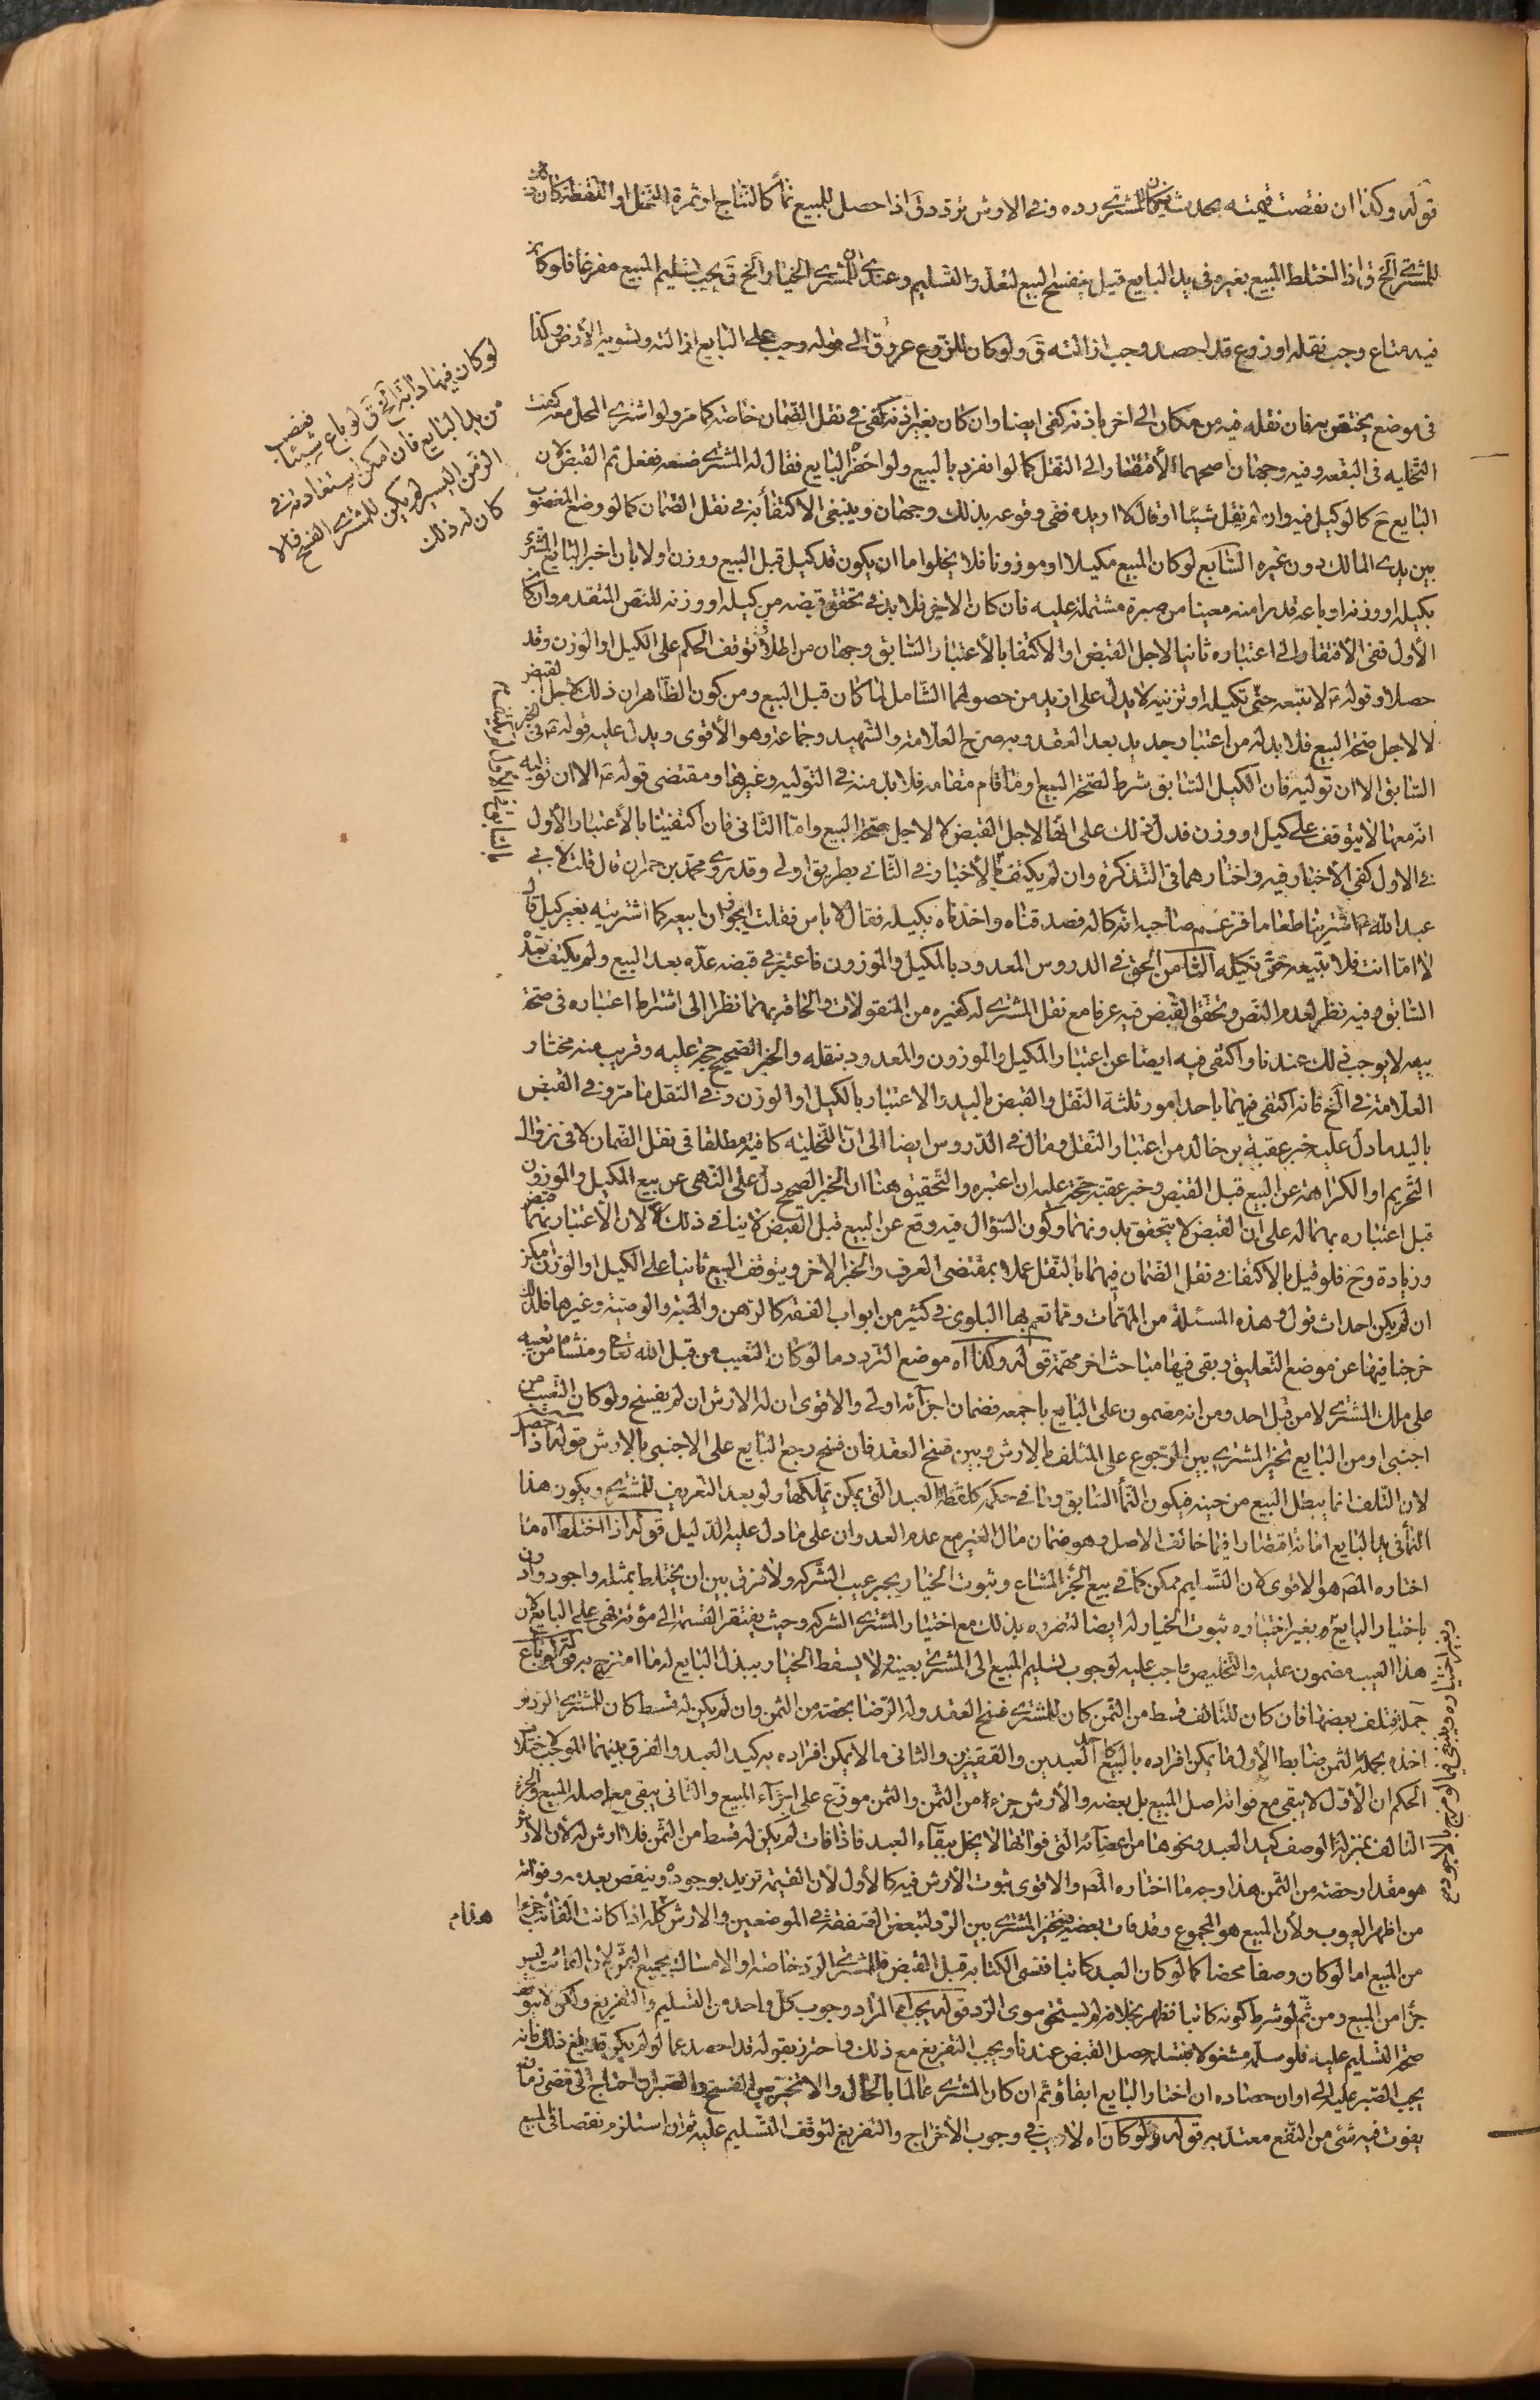 قوله وكذا ان نقصت قيمته بحدث فيه كان للمشتري رده وفي الارش تردد ق اذا حصل للمبيع نماء كالنتاج او ثمرة النخل او اللقطة كان ذلك
للمشتري الخ ق اذا اختلط المبيع بغيره في يد البايع قيل ينفسخ البيع لتعذر التسليم وعندي ان المشتري بالخيار الخ ق يجب تسليم المبيع مفرغا فلو كان
فيه متاع وجب نقله او زرع قد احصد وجب ازالته ق ولو كان للزرع عروق الى قوله وجب على البايع ازالته وتسوية الارض وكذا
لو كان فيها دابة الخ ق لو باع شيئا فغصب
من يد البايع فان امكن استعادته في
الزمن اليسير لم يكن للمشتري الفسخ والا
كان له ذلك
في موضع يختص به فان نقله فيه من مكان الى اخر باذنه كفى ايضا وان كان بغير اذنه كفى في نقل الضمان خاصة كما مر ولو اشترى المحل معه كفت
التخلية في البقعة وفيه وجهان اصحهما الافتقار الى النقل كما لو انفرد بالبيع ولو احضره البايع فقال له المشتري ضعه ففعل تم القبض لان
البايع ح كالوكيل فيه وان لم يقل شيئا او قال لا اريده ففي وقوعه بذلك وجهان وينبغي الاكتفاء به في نقل الضمان كما لو وضع المغصوب
بين يدي المالك دون غيره السابع لو كان المبيع مكيلا او موزونا فلا يخلوا ما ان يكون قد كيل قبل البيع ووزن اولا بان اخبر البايع المشتري
بكيله او وزنه او باعه قدرا منه معينا من صبرة مشتملة عليه فان كان الاخير فلا بد في تحقق قبضه من كيله او وزنه للنص المتقدم وان كان
الأول ففي الافتقار الى اعتباره ثانيا لاجل القبض او الاكتفا بالاعتبار السابق وجهان من اطلاق توقف الحكم على الكيل او الوزن وقد
حصلا وقوله ع لا تبعه حتى تكيله او تزنه لا يدل على ازيد من حصولهما الشامل لما كان قبل البيع ومن كون الظاهر ان ذلك لاجل القبض
لا لاجل صحة البيع فلا بد له من اعتبار جديد بعد العقد وبه صرح العلامة والشهيد وجماعة وهو الأقوى ويدل عليه قوله ع في الخبر
السابق الا ان توليه فان الكيل السابق شرط لصحة البيع او ما قام مقامه فلا بد منه في التولية وغيرها ومقتضى قوله ع الا ان توليه
انه معها لا يتوقف على كيل او وزن فدل ذلك على انهما لاجل القبض لا لاجل صحة البيع واما الثاني فان اكتفينا بالاعتبار الأول
في الاول كفى الأخبار فيه واختارهما في التذكرة وان لم يكتف بالأخبار في الثاني بطريق اولى وقد روى محمد بن حمران قال قلت لابي
عبد الله ع اشترينا طعاما فزعم صاحبه انه كاله فصدقناه واخذناه بكيله فقال لا باس فقلت ايجوز ان ابيعه كما اشتريته بغير كيل قال
لا اما انت فلا تبعه حتى تكيله الثامن الحق في الدروس المعدود بالمكيل والموزون فاعتبر في قبضه عده بعد البيع ولم يكتف بعده
السابق وفيه نظر لعدم النص وتحقق القبض فيه عرفا مع نقل المشتري له كغيره من المنقولات والحاقه بهما نظرا الى اشتراط اعتباره في صحة
بيعه لا يوجب ذلك عندنا واكتفى فيه ايضا عن اعتبار المكيل والموزون والمعدود بنقله والخبر الصحيح حجة عليه وقريب منه مختار
العلامة في الخ فانه اكتفى فيهما باحد امور ثلثة النقل والقبض باليد والاعتبار بالكيل او الوزن وفي النقل ما مر وفي القبض
باليد ما دل عليه خبر عقبة بن خالد من اعتبار النقل وقال في الدروس ايضا الى ان التخلية كافية مطلقا في نقل الضمان لا في زوال
التحريم او الكراهة عن البيع قبل القبض وخبر عقبة حجة عليه ان اعتبره والتحقيق هنا ان الخبر الصحيح دل على النهي عن بيع المكيل والموزون
قبل اعتباره بهما لا على ان القبض لا يتحقق بدونهما وكون السؤال فيه وقع عن البيع قبل القبض لا ينافي ذلك لان الاعتبار بهما قبض
وزيادة وح فلو قيل بالاكتفا في نقل الضمان فيهما بالنقل عملا بمقتضى العرف والخبر الاخر ويتوقف البيع ثانيا على الكيل او الوزن امكن
ان لم يكن احداث قول وهذه المسئلة من المهمات ومما تعم بها البلوى في كثير من ابواب الفقه كالرهن والهبة والوصية وغيرها فلذلك
خرجنا فيها عن موضع التعليق وبقي فيها مباحث اخر مهمة قوله وكذا اه موضع التردد ما لو كان التعيب من قبل الله تعا ومنشا من تعيبه
على ملك المشتري لا من قبل احد ومن انه مضمون على البايع باجمعه فضمان اجزائه اولى والاقوى ان له الارش ان لم يفسخ ولو كان التعيب من
اجنبي او من البايع تخير المشتري بين الرجوع على المتلف بالارش وبين فسخ العقد فان فسخ رجع البايع على الاجنبي بالارش قوله اذا حصل
لان التلف انما يبطل البيع من حينه فيكون النماء السابق وما في حكمه كلقطة العبد التي يمكن تملكها ولو بعد التعريف للمشتري ويكون هذا
النماء في يد البايع امانة اقتصارا فيما خالف الاصل وهو ضمان مال الغير مع عدم العدوان على ما دل عليه الدليل قوله اذا اختلط اه ما
اختاره المص هو الاقوى لان التسليم ممكن كما في بيع الجزء المشاع وثبوت الخيار يجبر عيب الشركة ولا فرق بين ان يختلط بمثله واجود وادون
باختيار البايع وبغير اختياره ثبوت الخيار له ايضا لتضرره بذلك مع اختيار المشتري الشركة وحيث يفتقر القسمة الى مؤنة فهي على البايع لان
هذا العيب مضمون عليه والتخليص واجب عليه لوجوب تسليم المبيع الى المشتري بعينه ولا يسقط الخيار ببذل البايع له ما امتزج به قوله لو باع
جملة فتلف بعضها فان كان للتالف قسط من الثمن كان للمشتري فسخ العقد وله الرضا بحصته من الثمن وان لم يكن له قسط كان للمشتري الرد او
اخذه بجملة الثمن ضابط الأول ما يمكن افراده بالبيع كاحد العبدين والقفيزين والثاني ما لا يمكن افراده به كيد العبد والفرق بينهما الموجب لاختلاف
الحكم ان الأول لا يبقى مع فواته اصل المبيع بل بعضه والأرش جزء من الثمن والثمن موزع على اجزاء المبيع والثاني يبقى معه اصل المبيع والجزء
التالف بمنزلة الوصف كيد العبد ونحوها من اعضائه التي فواتها لا يخل ببقاء العبد فاذا فات لم يكن له قسط من الثمن فلا ارش له لأن الارش
هو مقدار حصته من الثمن هذا وجه ما اختاره المص والاقوى ثبوت الأرش فيه كالأول لأن القيمة تزيد بوجوده وينقص بعدمه وفواته
من اظهر العيوب ولأن المبيع هو المجموع وقد فات بعضه فيتخير المشتري بين الرد لتبعض الصفقة في الموضعين والارش هذا كله اذا كانت الفائت جزءا
من المبيع اما لو كان وصفا محضا كما لو كان العبد كاتبا فنسي الكتابة قبل القبض فللمشتري الرد خاصة او الامساك بجميع الثمن لان الفائت ليس
جزأ من المبيع ومن ثم لو شرط كونه كاتبا فظهر بخلافه لم يستحق سوى الرد قوله يجب اه المراد وجوب كل واحد من التسليم والتفريغ ولكن لا يتوقف
صحة التسليم عليه فلو سلمه مشغولا فتسلمه حصل القبض عندنا ويجب التفريغ مع ذلك واحترز بقوله قد احصد عما لو لم يكن قد بلغ ذلك فانه
يجب الصبر عليه الى اوان حصاده ان اختار البايع ابقاؤه ثم ان كان المشتري عالما بالحال والا تخير بين الفسخ والصبر ان احتاج الى مضي زمان
يفوت فيه شئ من النفع معتد به قوله ولو كان اه لا ريب في وجوب الأخراج والتفريغ لتوقف التسليم عليه ثم ان استلزم نقصا في المبيع